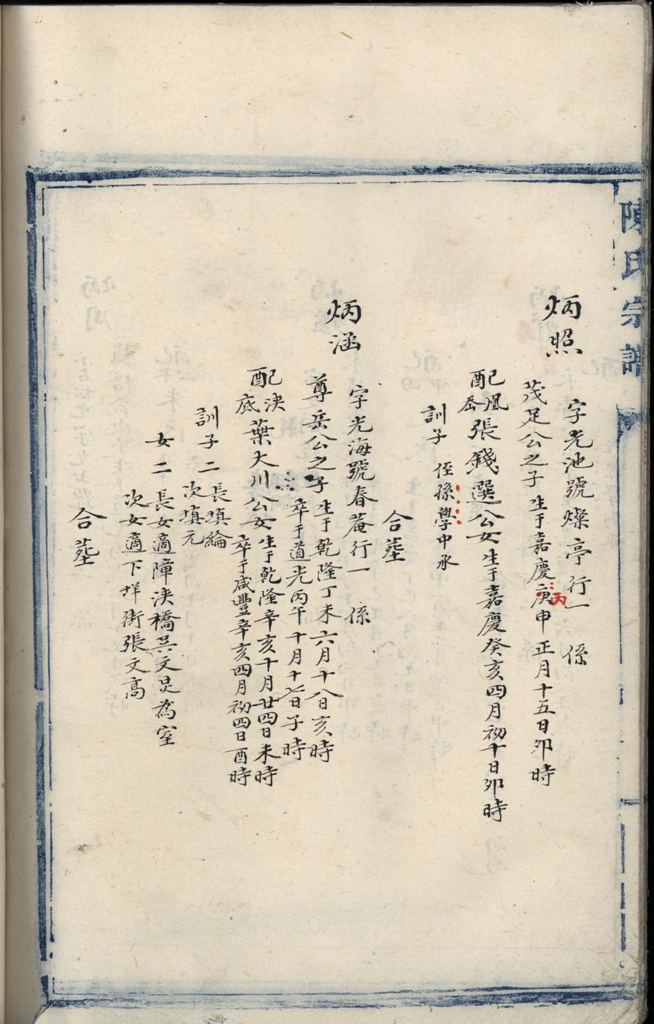 陳氏宗譜
炳照
字光池號燦亭行一 係
茂足公之子 生于嘉慶丙庚申正月十五日卯時
配風岙張錢選公女生于嘉慶癸亥四月初十日卯時
訓子 侄孫學中承
合墓
炳涵
字光海號春菴行一 係
尊岳公之子 生于乾隆丁未六月十八日亥時
卒于道光丙午十月十七日子時
配決底葉大川公女生于乾隆辛亥十月廿四日未時
卒于咸豐辛亥四月初四日酉時
訓子二 長填綸
次填元
女二 長女適障決橋吳文炅為室
次女適下垟街張文高
合墓